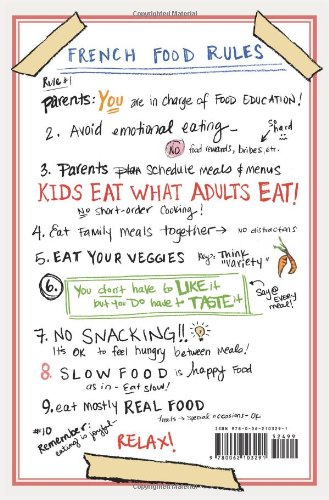 Copyrighted Material
FRENCH FOOD RULES
Rule #1
Parents: You are in charge of FOOD EDUCATION!
2. Avoid emotional eating
So hard
No food rewards, bribes, etc.
3. Parents plan schedule meals & menus
KIDS EAT WHAT ADULTS EAT!
No short-order cooking!
4. Eat Family meals together → no distractions
5. EAT YOUR VEGGIES Key: Think "Variety"
6. You don't have to LIKE it
but you DO have to TASTE it
Say @ EVERY meal!
7. NO SNACKING!!
It's OK to feel hungry between meals!
8. SLOW FOOD is happy Food
as in - Eat slow!
9. eat mostly REAL FOOD
treats → special occasions - OK
#10
Remember:
Eating is joyful
RELAX!
ISBN 978-0-06-210329-1
52499
9 780062 103291
Copyrighted Material